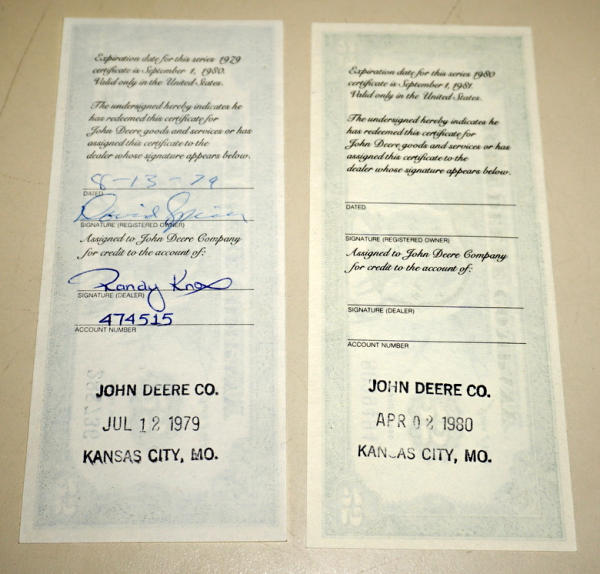 Expiration date for this series 1979
certificate is September 1, 1980.
Valid only in the United States.
The undersigned hereby indicates he
has redeemed this certificate for
John Deere goods and services or has
assigned this certificate to the
dealer whose signature appears below.
8-13-79
DATED
David
SIGNATURE (REGISTERED OWNER)
Assigned to John Deere Company
for credit to the account of:
Randy Knox
SIGNATURE (DEALER)
474515
ACCOUNT NUMBER
JOHN DEERE CO.
JUL 12 1979
KANSAS CITY, MO.
Expiration date for this series 1980
certificate is September 1, 1981.
Valid only in the United States.
The undersigned hereby indicates he
has redeemed this certificate for
John Deere goods and services or has
assigned this certificate to the
dealer whose signature appears below.
DATED
SIGNATURE (REGISTERED OWNER)
Assigned to John Deere Company
for credit to the account of:
SIGNATURE (DEALER)
ACCOUNT NUMBER
JOHN DEERE CO.
APR 02 1980
KANSAS CITY, MO.